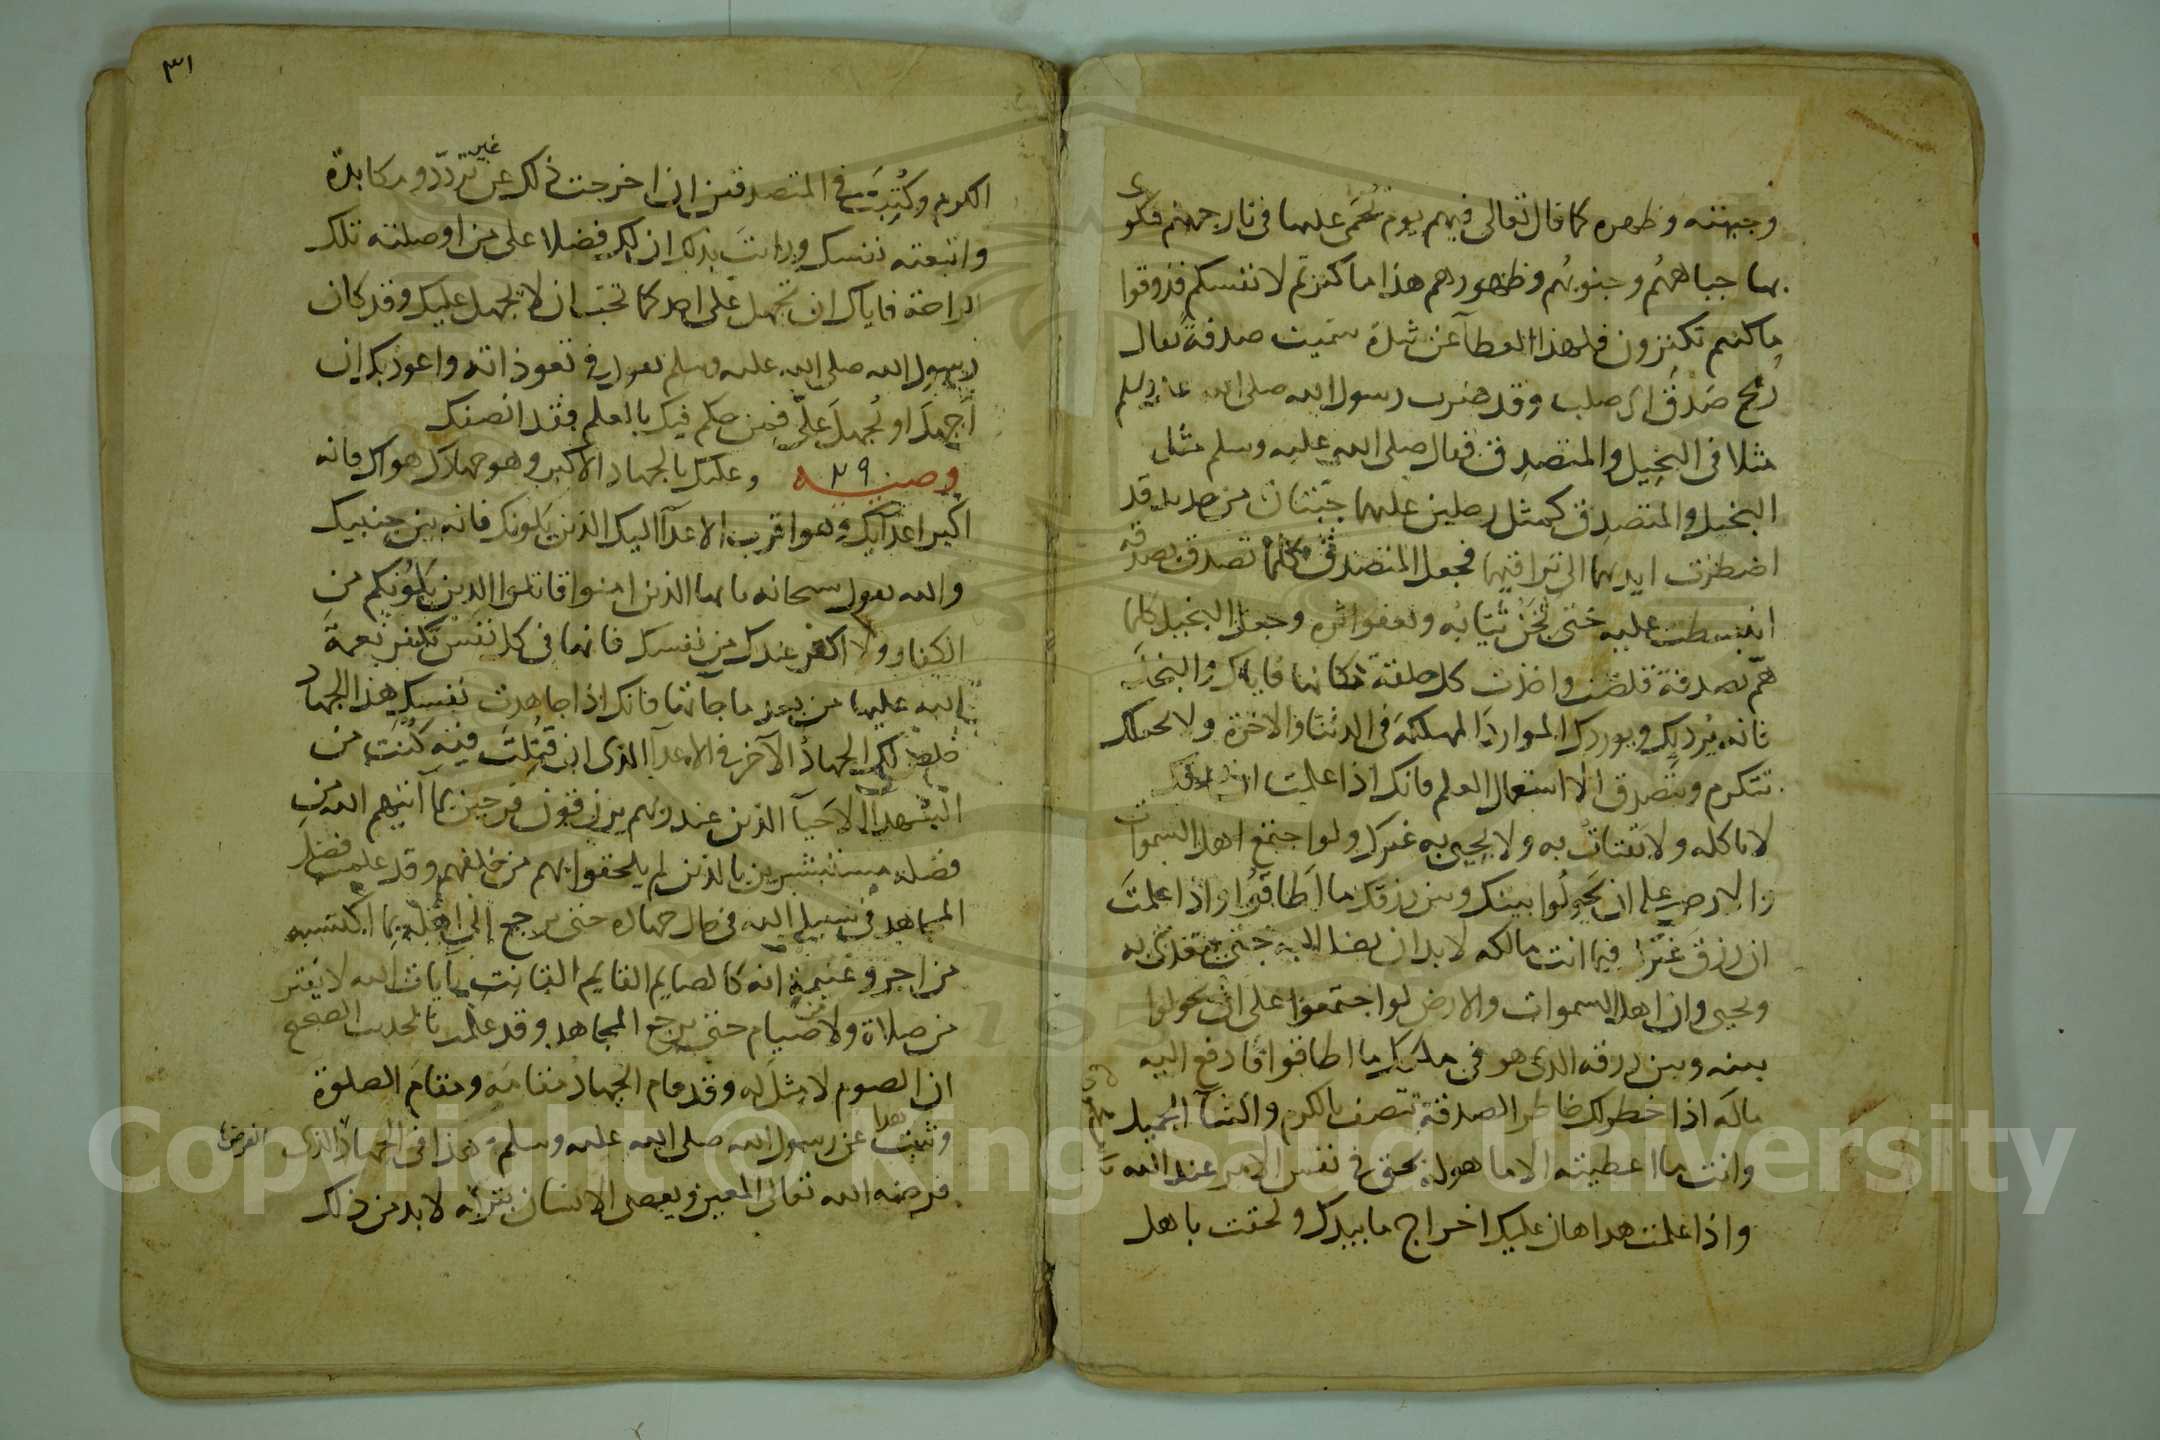 وجبهته وظهره كما قال تعالى فيهم يوم تُحمَى عليها فى نار جهنم فتكوى
بها جباههُم وجنوبهُم وظهورهم هذا ما كنزتم لانفسكم فذوقوا
ما كنتم تكنزون فلهذا العطآ عن شدة سميت صدقةً يقال
رمح صَدْق اى صلب وقد ضرب رسول الله صلى الله عليه وسلم
مثلا فى البخيل والمتصدق فقال صلى الله عليه وسلم مثل
البخيل والمتصدق كمثل رجلين عليهما جُبّتان من حديد قد
اضطرت ايديهما الى تراقيهما فجعل المتصدق كلما تصدق بصدقة
انبسطت عليه حتى تجن ثيابه وتعفو اثره وجعل البخيل كلما
همّ بصدقة قلصت واخذت كل حلقة مكانها فاياك والبخل
فانه يُرديك ويوردك الموارد المهلكة فى الدنيا والاخرة ولا يحملك
تتكرم وتتصدق الا استعمال العلم فانك اذا علمت ان رزقك
لا ياكله ولا يقتات به ولا يحيى به غيرك ولو اجتمع اهل السموات
والارض على ان يَحُولُوا بينك وبين رزقك ما اطاقوا واذا علمتَ
ان رزق غيرك فيما انت مالكه لا بد ان يصل اليه حتى يتغذى به
ويحيى وان اهل السموات والارض لو اجتمعوا على ان يحولوا
بينه وبين رزقه الذى هو فى ملكك ما اطاقوا فادفع اليه
ماله اذا خطر لك خاطر الصدقة تتصف بالكرم والثنآ الجميل
وانت ما اعطيته الا ما هو له بحق فى نفس الامر عند الله
واذا علمت هذا هان عليك اخراج ما بيدك ولحقت باهل
٣١
الكرم وكُتِبتَ فى المتصدقين ان اخرجت ذلك عن غير تردّد ومكابدة
واتبعته نفسك ورايتَ بذلك ان لك فضلا على من اوصلته تلك
الراحة فاياك ان تجهل على احد كما تحب ان لا يُجهل عليك وقد كان
رسول الله صلى الله عليه وسلم يقول فى تعوذاته واعوذ بك ان
اَجهلَ او يُجهلَ عليّ فمن حكم فيك بالعلم فقد انصفك
وصية ٢٩ وعليك بالجهاد الاكبر وهو جهادك هواك فانه
اكبر اعدآيك وهو اقرب الاعدآ اليك الذين يَلونك فانه بين جنبيك
والله يقول سبحانه يا ايها الذين امنوا قاتلوا الذين يَلُونكم من
الكفار ولا اكفر عندك من نفسك فانها فى كل نفس تكفر نعمةَ
الله عليها من بعد ما جاتها فانك اذا جاهدت نفسك هذا الجهاد
خلص لك الجهادُ الآخر فى الاعدآ الذى ان قُتِلتَ فيه كُنتَ من
الشهدآ الاحيآ الذين عند ربهم يرزقون فرحين بما آتيهم الله من
فضله مستبشرين بالذين لم يلحقوا بهم من خلفهم وقد علمت فضل
المجاهد فى سبيل الله فى حال جهاده حتى يرجع الى اهله بما اكتسبه
من اجر وغنيمة انه كالصايم القايم القانت بآيات الله لا يفتر
من صلاة ولا من صيام حتى يرجع المجاهد وقد علمت بالحديث الصحيح
ان الصوم لا مثل له وقد قام الجهاد مقامَه ومقامَ الصلوة
وثبت هذا عن رسول الله صلى الله عليه وسلم وهذا فى الجهاد الذى
فرضه الله تعالى المعين ويعصى الانسان بتركه لا بد من ذلك
Copyright © King Saud University